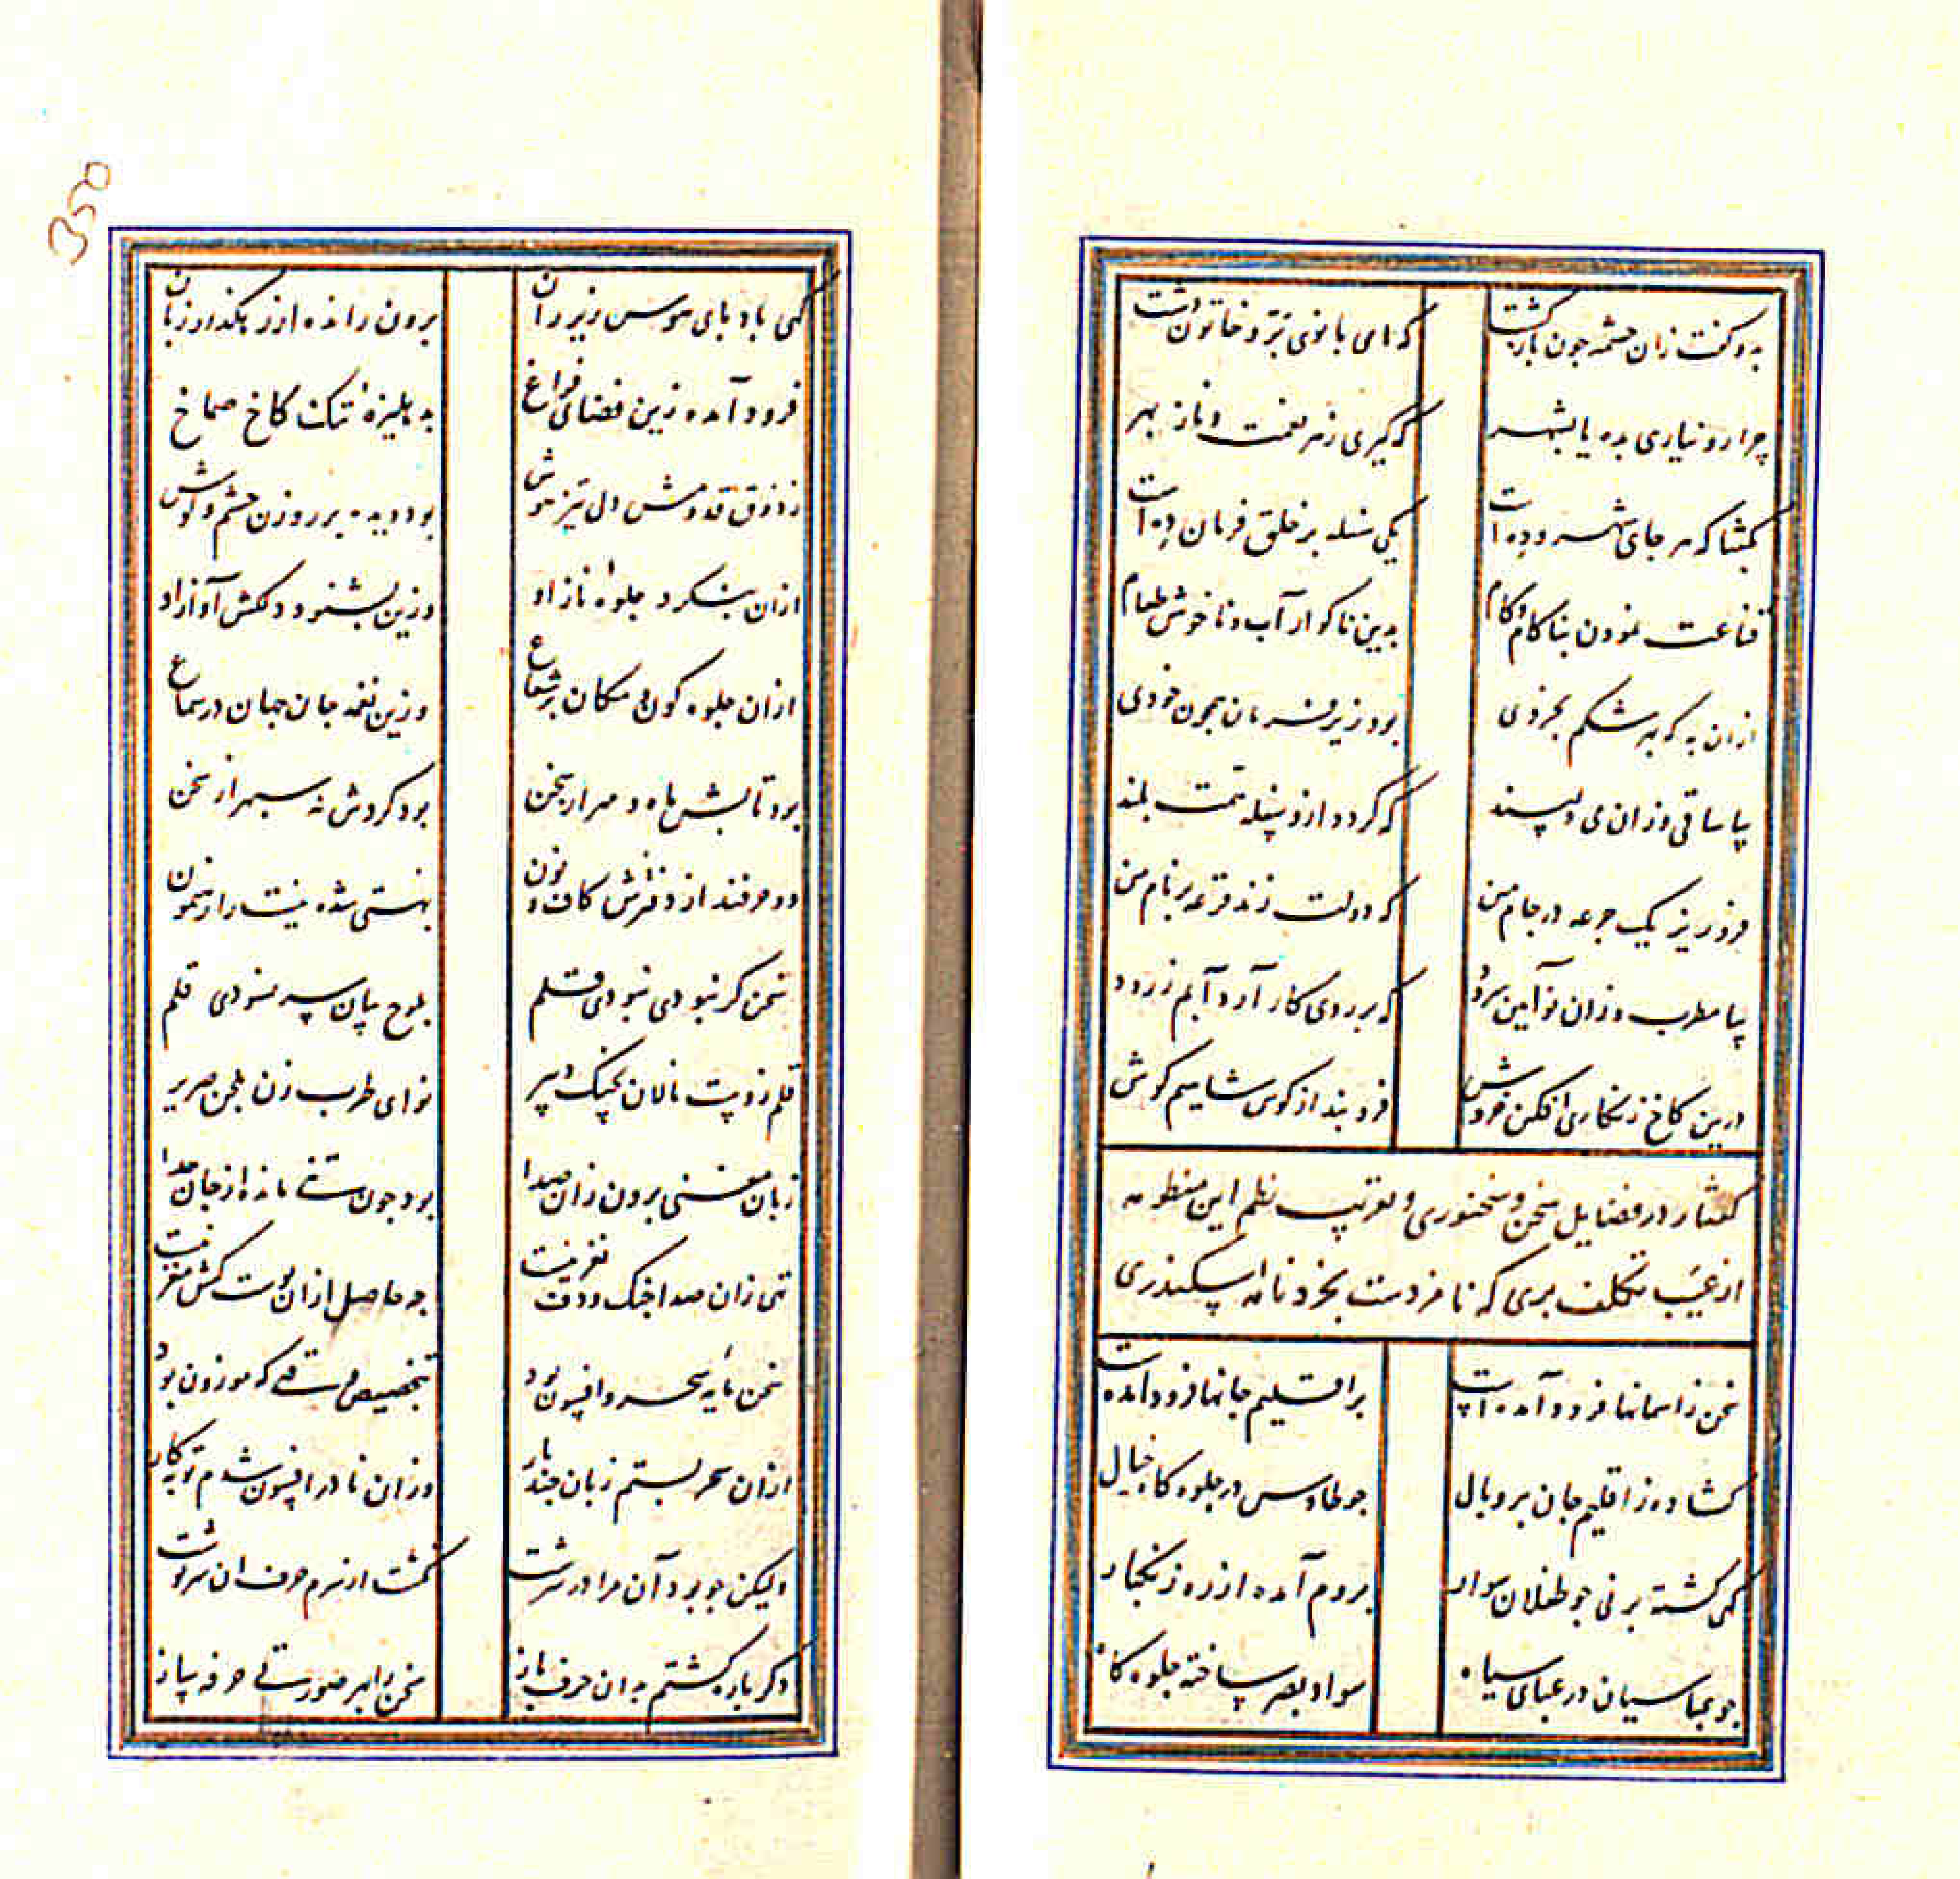 بدو گفت زان چشمه چون بازگشت که ای بانوی بر و خاتون دشت
چرا رو نیاری بده یا بشهر که گیری ز هر نعمت و ناز بهر
بگفتا که هر جای شهر و ده است یکی سفله بر خلق فرمان ده است
قناعت نمودن بناکام و کام بدین ناگوار آب و ناخوش طعام
ازان به که بهر شکم بخردی بود زیر فرمان همچون خودی
بیا ساقی و زان می دلپسند که گردد ازو سفله همت بلند
فرو ریز یک جرعه در جام من که دولت زند قرعه بر نام من
بیا مطرب و زان نوآیین سرود که بر روی کار آرد آبم ز رود
درین کاخ زنگاری افکن خروش فرو بند از کوس شاهیم گوش
گفتار در فضایل سخن و سخنوری و ترتیب نظم این منظومه
از عیب تکلف بری که نامزدست بخردنامه اسکندری
سخن ز آسمانها فرود آمده است بر اقلیم جانها فرود آمده است
گشاده ز اقلیم جان پر و بال چو طاوس در جلوه گاه خیال
گهی گشته بر نی چو طفلان سوار بروم آمده از ره زنگبار
چو عباسیان در عبای سیاه سواد بصر ساخته جلوه گاه
350
گهی بادپای هوس زیر ران برون رانده از رهگذار زبان
فرود آمده زین فضای فراغ بدهلیزه تنگ کاخ صماخ
ز ذوق قدومش دل تیز هوش بود دیده بر روزن چشم و گوش
ازان بنگرد جلوه ناز او وزین بشنود دلکش آواز او
ازان جلوه کون و مکان پر شعاع وزین نغمه جان جهان در سماع
بود تابش ماه و مهر از سخن بود گردش نه سپهر از سخن
دو حرفند از دفترش کاف و نون بهستی شده نیست را رهنمون
سخن گر نبودی نبودی قلم بلوح بیان سر نسودی قلم
قلم زوست نالان بچنگ دبیر نوای طرب زن بلحن صریر
زبان مغنی برون زان صدا بود چون تنی مانده از جان جدا
تهی زان صدا چنگ و دف نغز نیست چه حاصل ازان پوست کش مغز نیست
سخن مایه سحر و افسون بود بتخصیص وقتی که موزون بود
ازان سحر بستم زبان چند بار وزان نادر افسون شدم توبه کار
ولیکن چو بود آن مرا در سرشت نگشت از سرم حرف آن سرنوشت
دگر باره گشتم بدان حرف باز سخن را بهر صورتی حرفه ساز